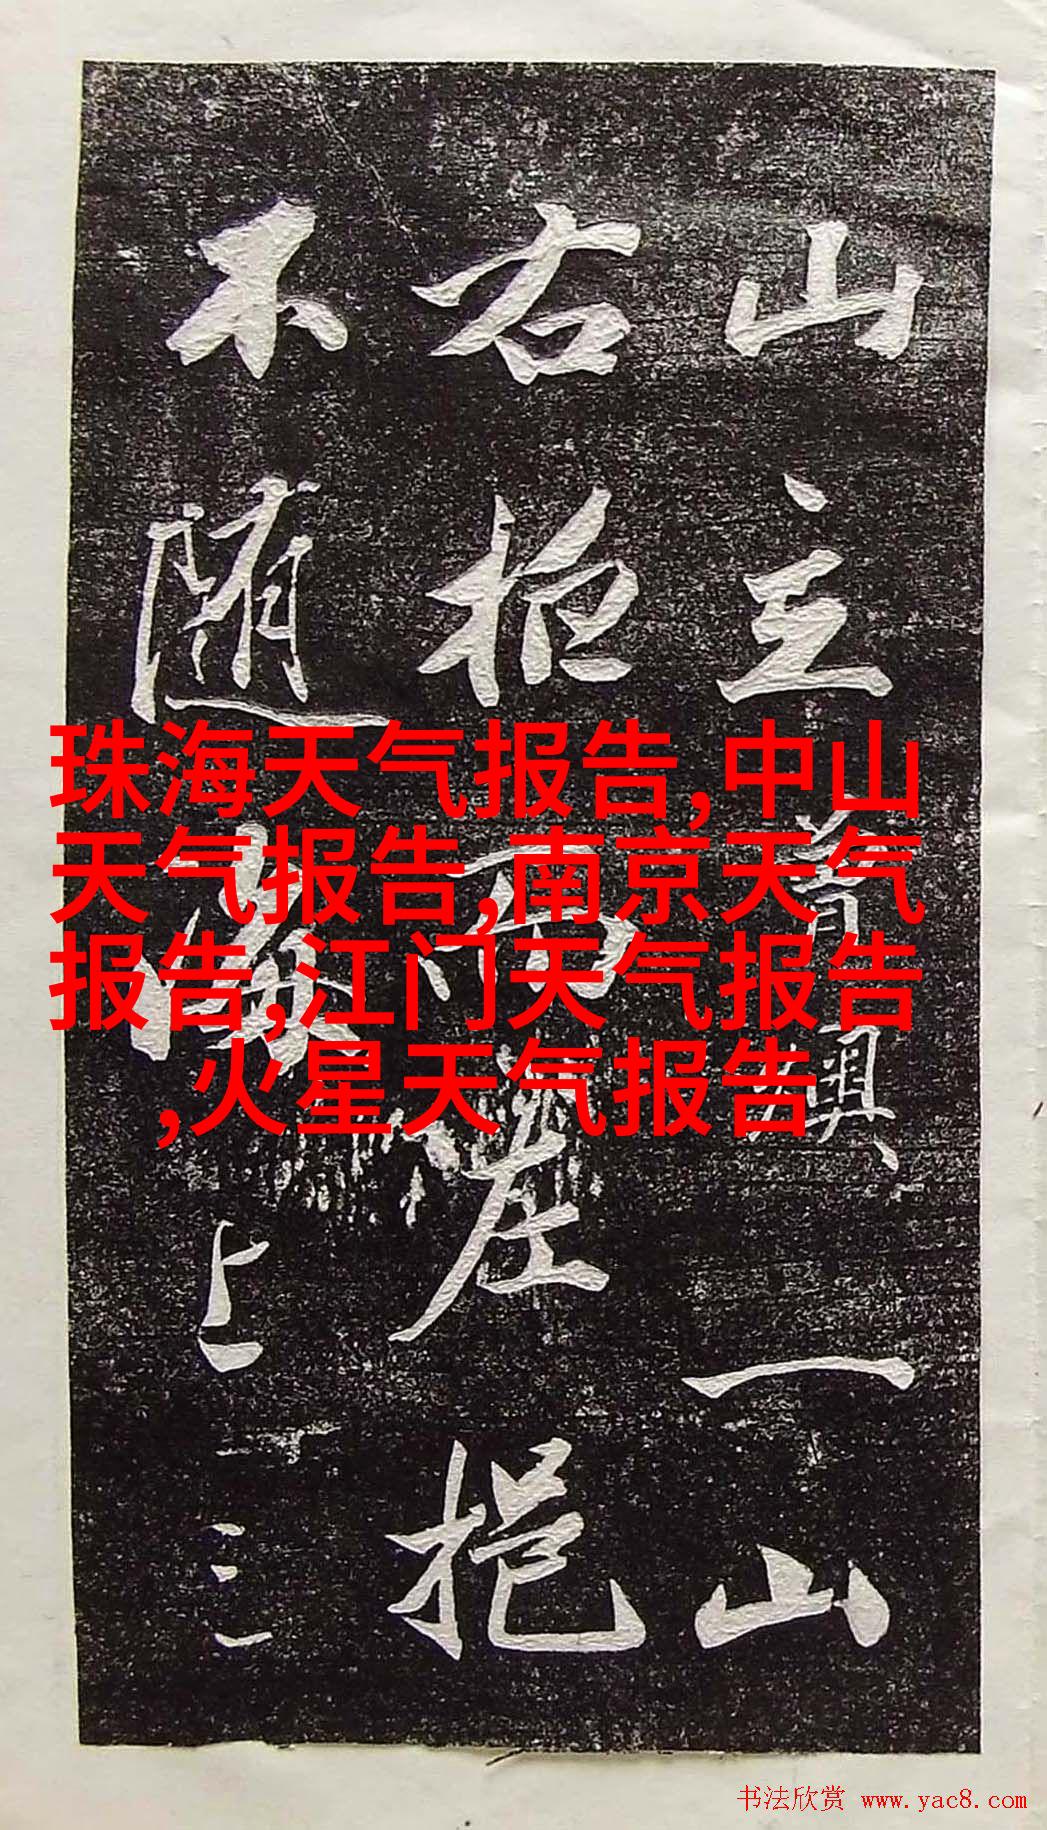 山主一山
右而左挹
不随海上三
珠海天气报告,中山
天气报告,南京天气
报告,江门天气报告
,火星天气报告
书法欣赏 www.yac8.com